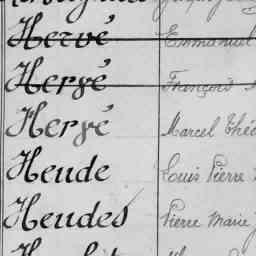 Hervé Emmanuel
Hervé François
Hervé Marcel Théo
Heude Louis Pierre
Heudes Pierre Marie